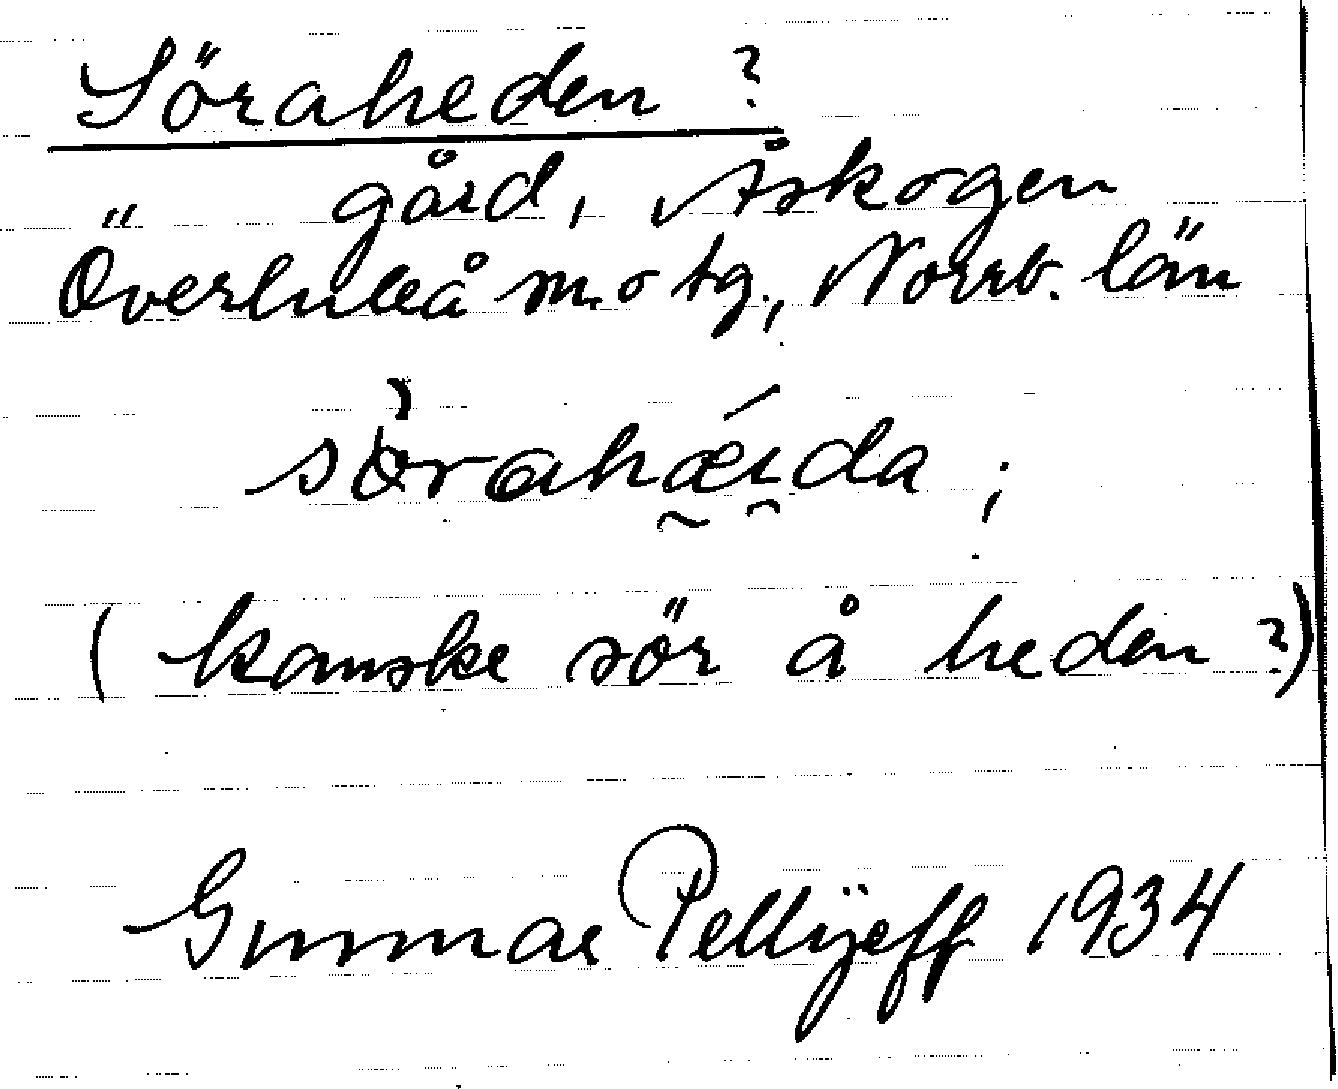 Söraheden ?
gård, Åskogen
Överluleå m. o tg., Norrb. län
sörahæida ;
( kanske sör å heden ? )
Gunnar Pellijeff 1934